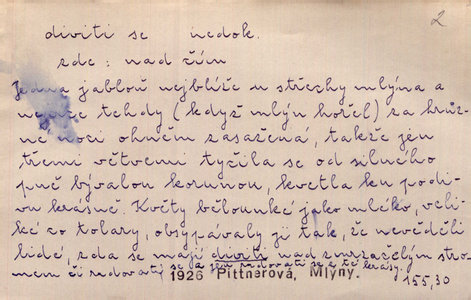 2
diviti se nedok.
zde: nad čím
Jedna jabloň nejblíže u střechy mlýna a
tehdy (když mlýn hořel) za hrůz-
né noci ohněm zasažená, takže jen
třemi větvemi tyčila se od silného
pně bývalou korunou, kvetla ku podi-
vu krásně. Květy bělounké jako mléko, veli-
ké co tolary, obsypávaly ji tak, že nevěděli
lidé, zda se mají diviti nad zmrzačelým stro-
mem či radovati se a jen radovati se z té krásy.
1926 Pittnerová, Mlýny.
155,30